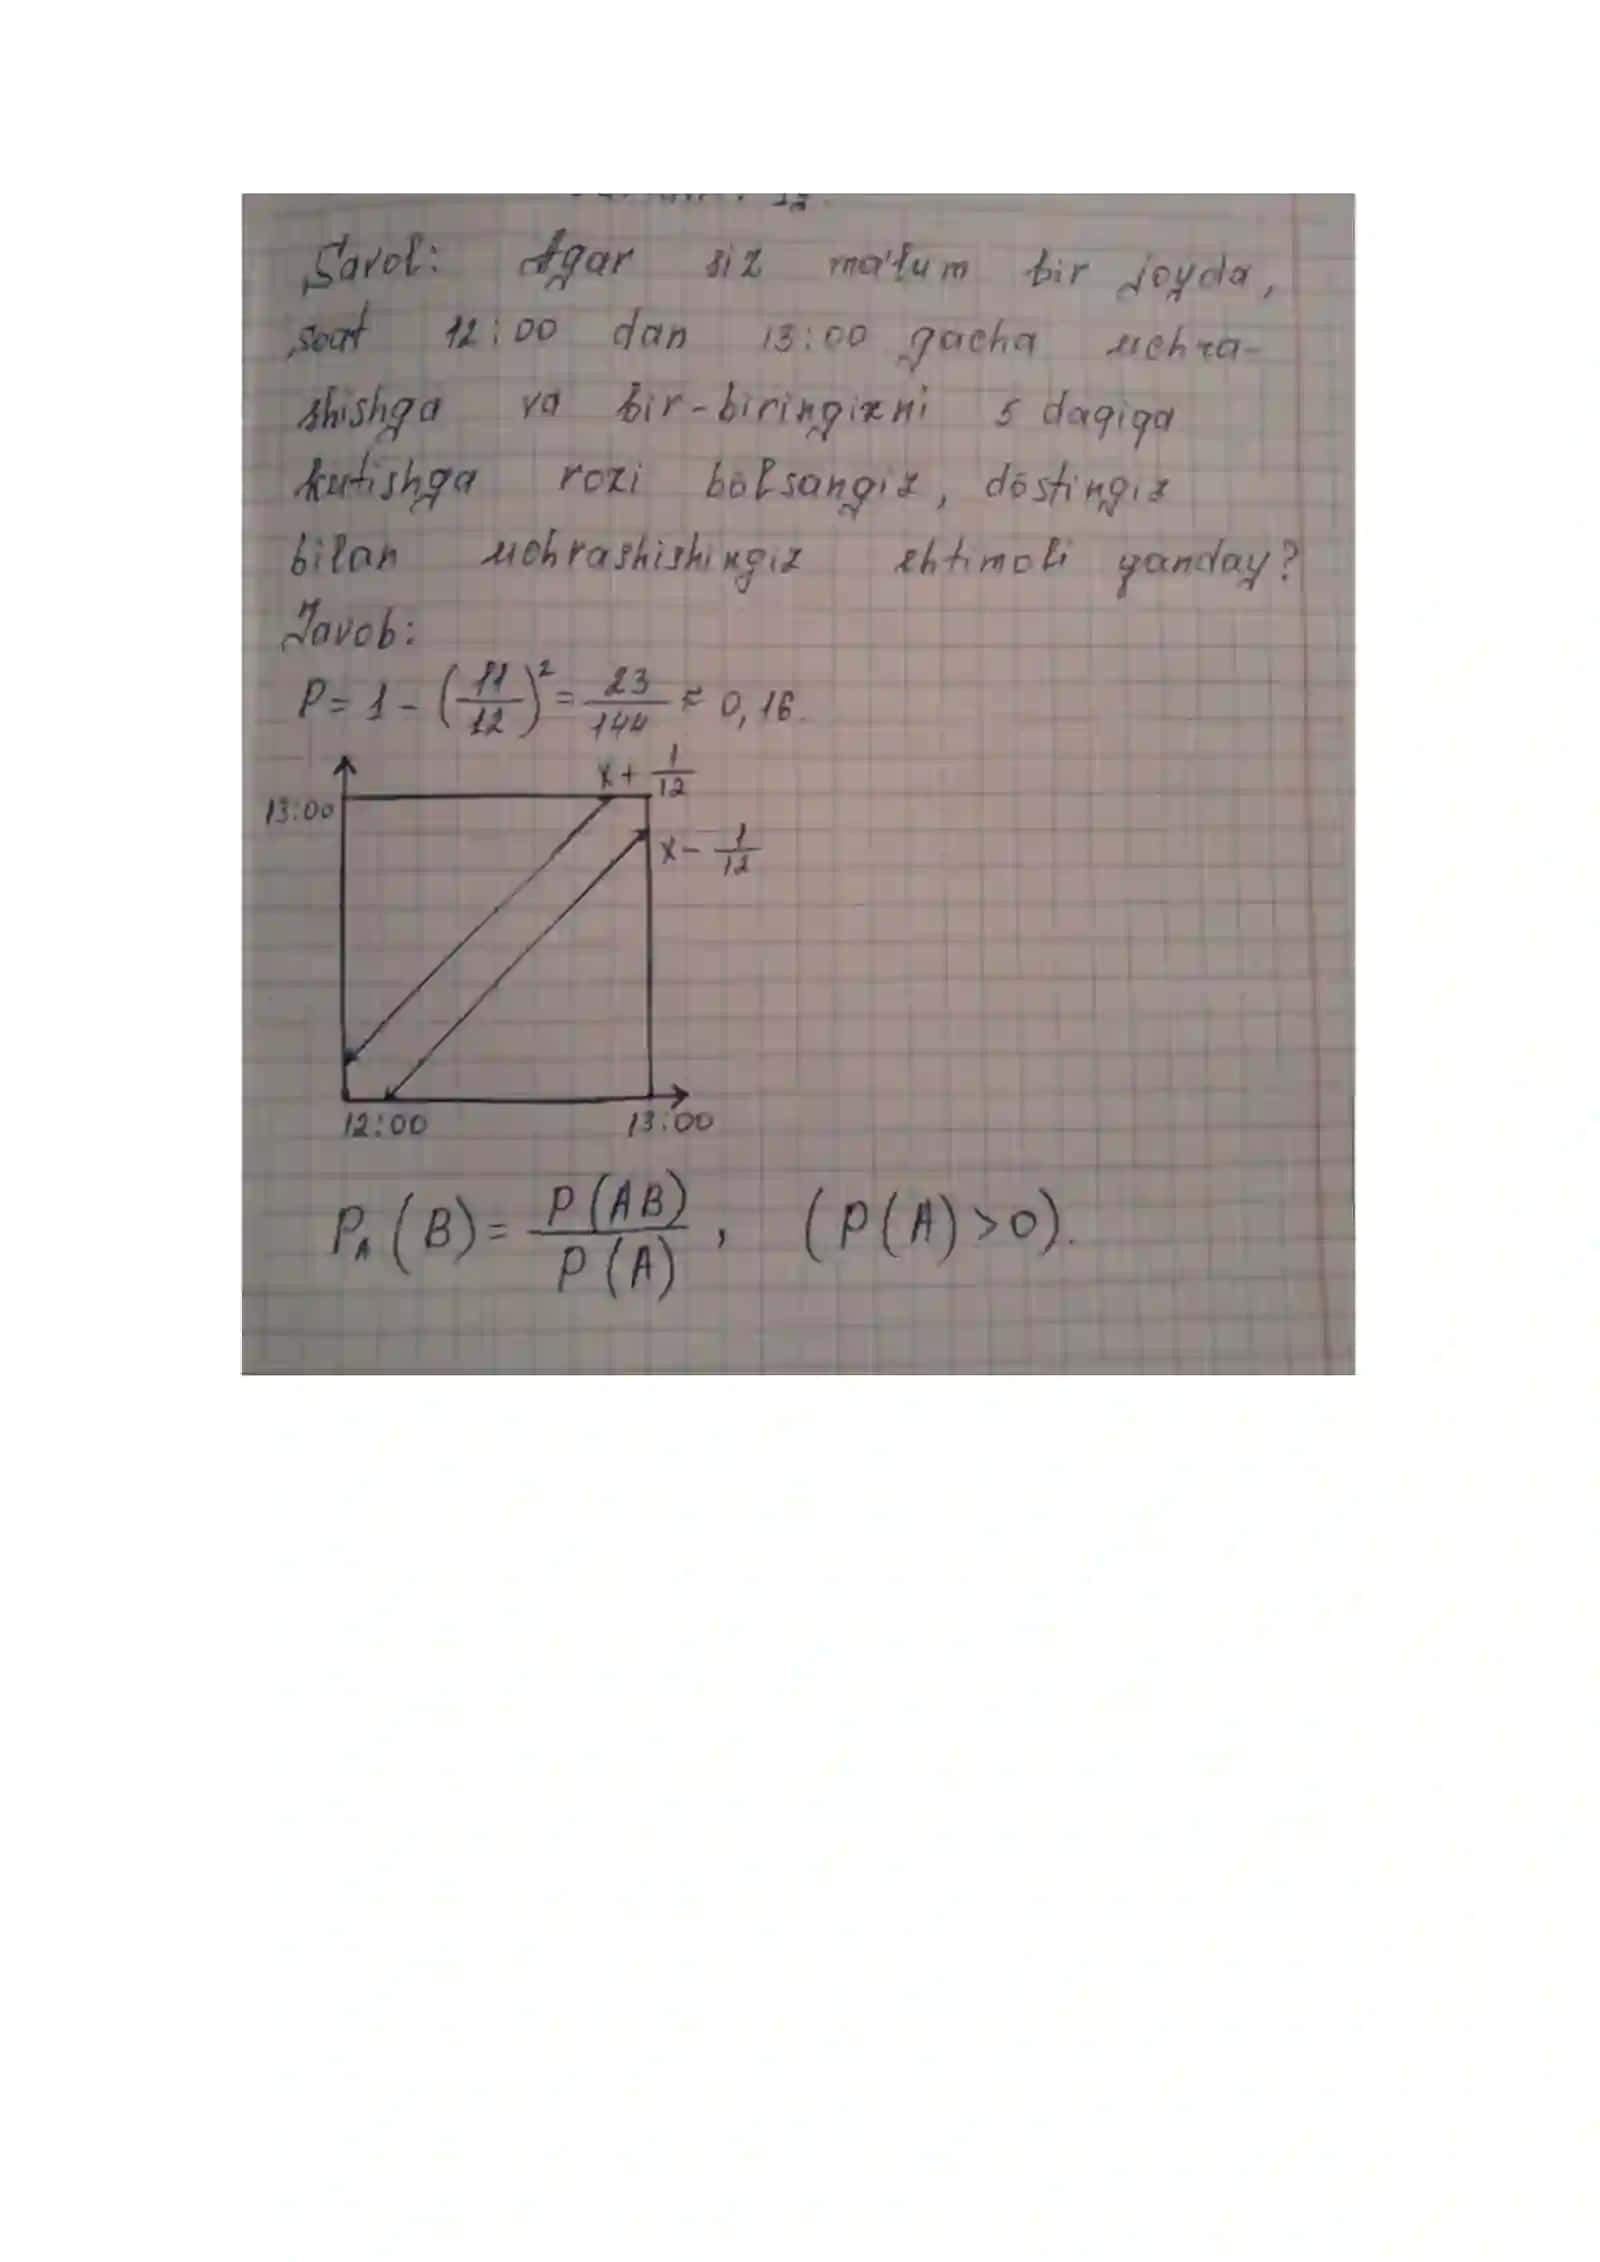 Savol: Agar siz ma'lum bir joyda,
soat 12:00 dan 13:00 gacha uchra-
shishga va bir-biringizni 5 daqiqa
kutishga rozi bōlsangiz, dōstingiz
bilan uchrashishingiz ehtimoli qanday?
Javob:
P = 1 - (11/12)² = 23/144 ≈ 0,16.
x + 1/12
13:00
x - 1/12
12:00 13:00
P_A(B) = P(AB)/P(A), (P(A) > 0).